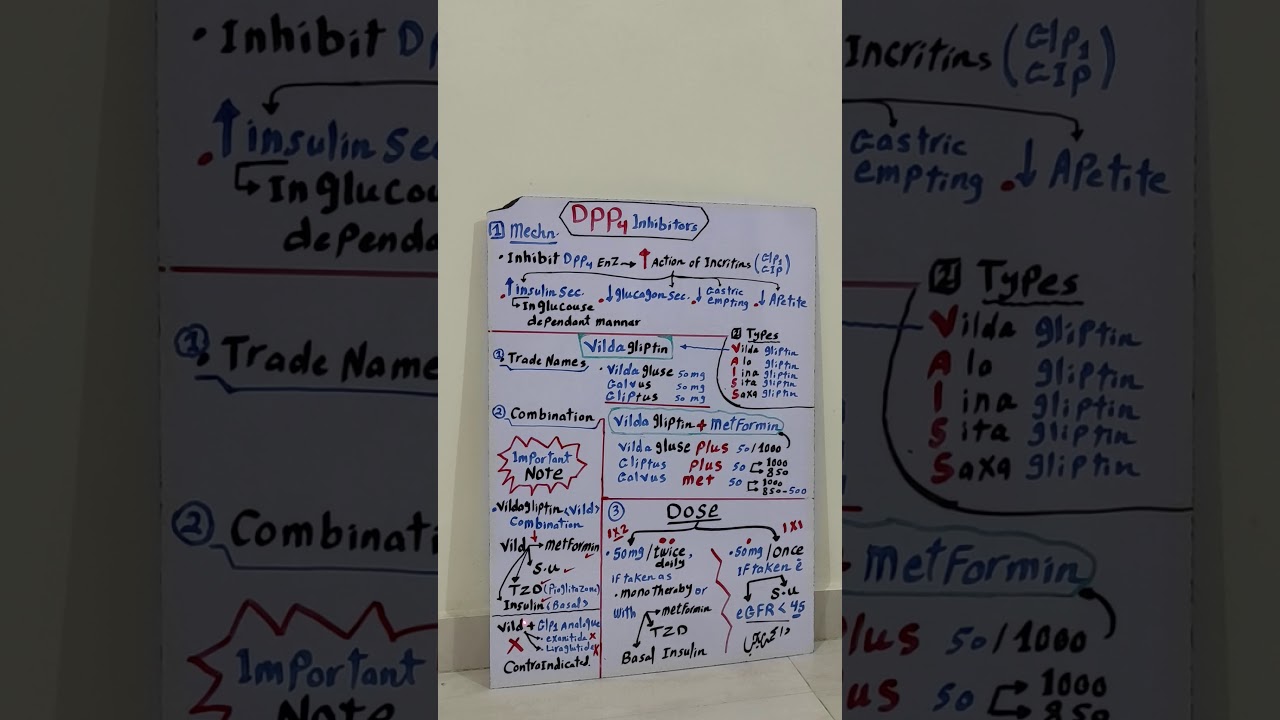 DPP4 Inhibitors
1 Mechn.
• Inhibit DPP4 EnZ → ↑ Action of Incritins (Glp1
GIP)
↑ insulin Sec. ↓ glucagon Sec. ↓ Gastric empting ↓ APetite
↳ In glucouse
dependant manner
1 Trade Names
Vilda gliptin
• Vilda gluse 50 mg
Galvus 50 mg
Gliptus 50 mg
2 Types
Vilda gliptin
Alo gliptin
lina gliptin
Sita gliptin
Saxa gliptin
2 Combination
Vilda gliptin + Metformin
Vilda gluse Plus 50/1000
Gliptus Plus 50 → 1000
→ 850
Galvus met 50 → 1000
→ 850-500
Important
Note
• Vildagliptin <Vild>
Combination
Vild → metformin ✓
S.u ✓
TZD (Pioglitazone)
Insulin (Basal)
Vild + Glp1 Analogue
exanitide x
Liraglutide x
X
ContraIndicated.
3 Dose
1x2
• 50mg/twice,
daily
if taken as
• monotheraby or
with → metformin
TZD
Basal Insulin
1x1
• 50mg/once
if taken c̄
S.u
eGFR < 45
• Inhibit DP
Incritins (Glp1
GIP)
↑ insulin Sec
↳ In gluco
dependa
Gastric
empting
↓ APetite
1 Trade Name
2 Types
Vilda gliptin
Alo gliptin
lina gliptin
Sita gliptin
Saxa gliptin
2 Combinati
Metformin
lus 50/1000
us 50 → 1000
→ 850
Important
Note